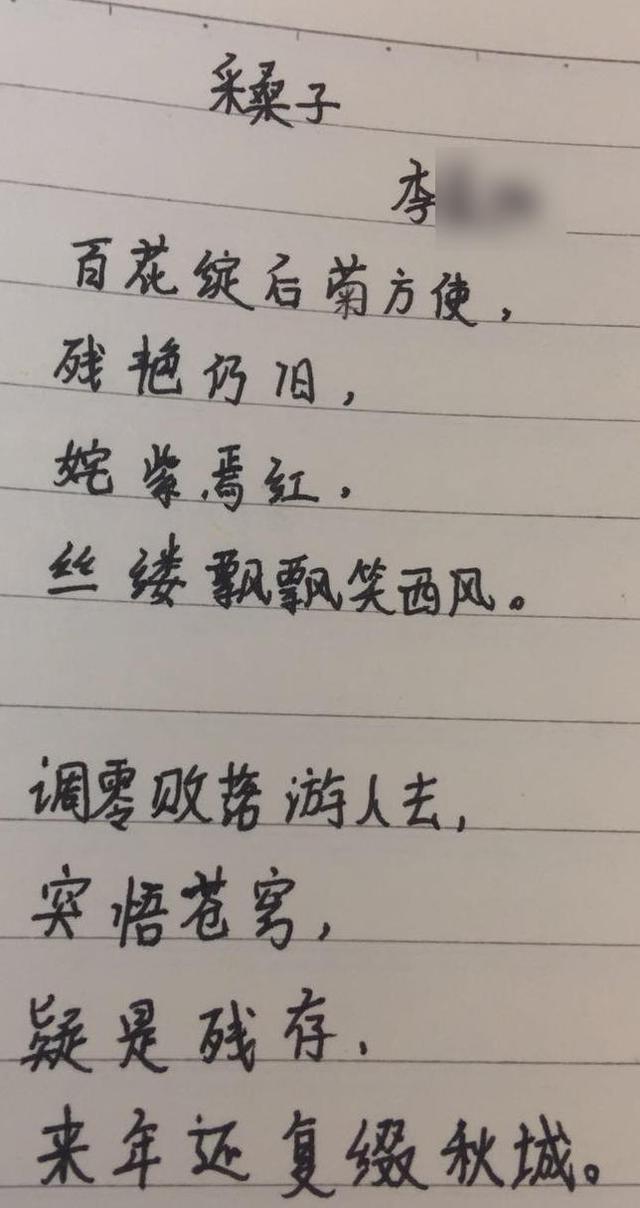 采桑子
李
百花绽后菊方使，
残艳仍旧，
姹紫焉红，
丝缕飘飘笑西风。
调零败落游人去，
突悟苍穹，
疑是残存，
来年还复缀秋城。